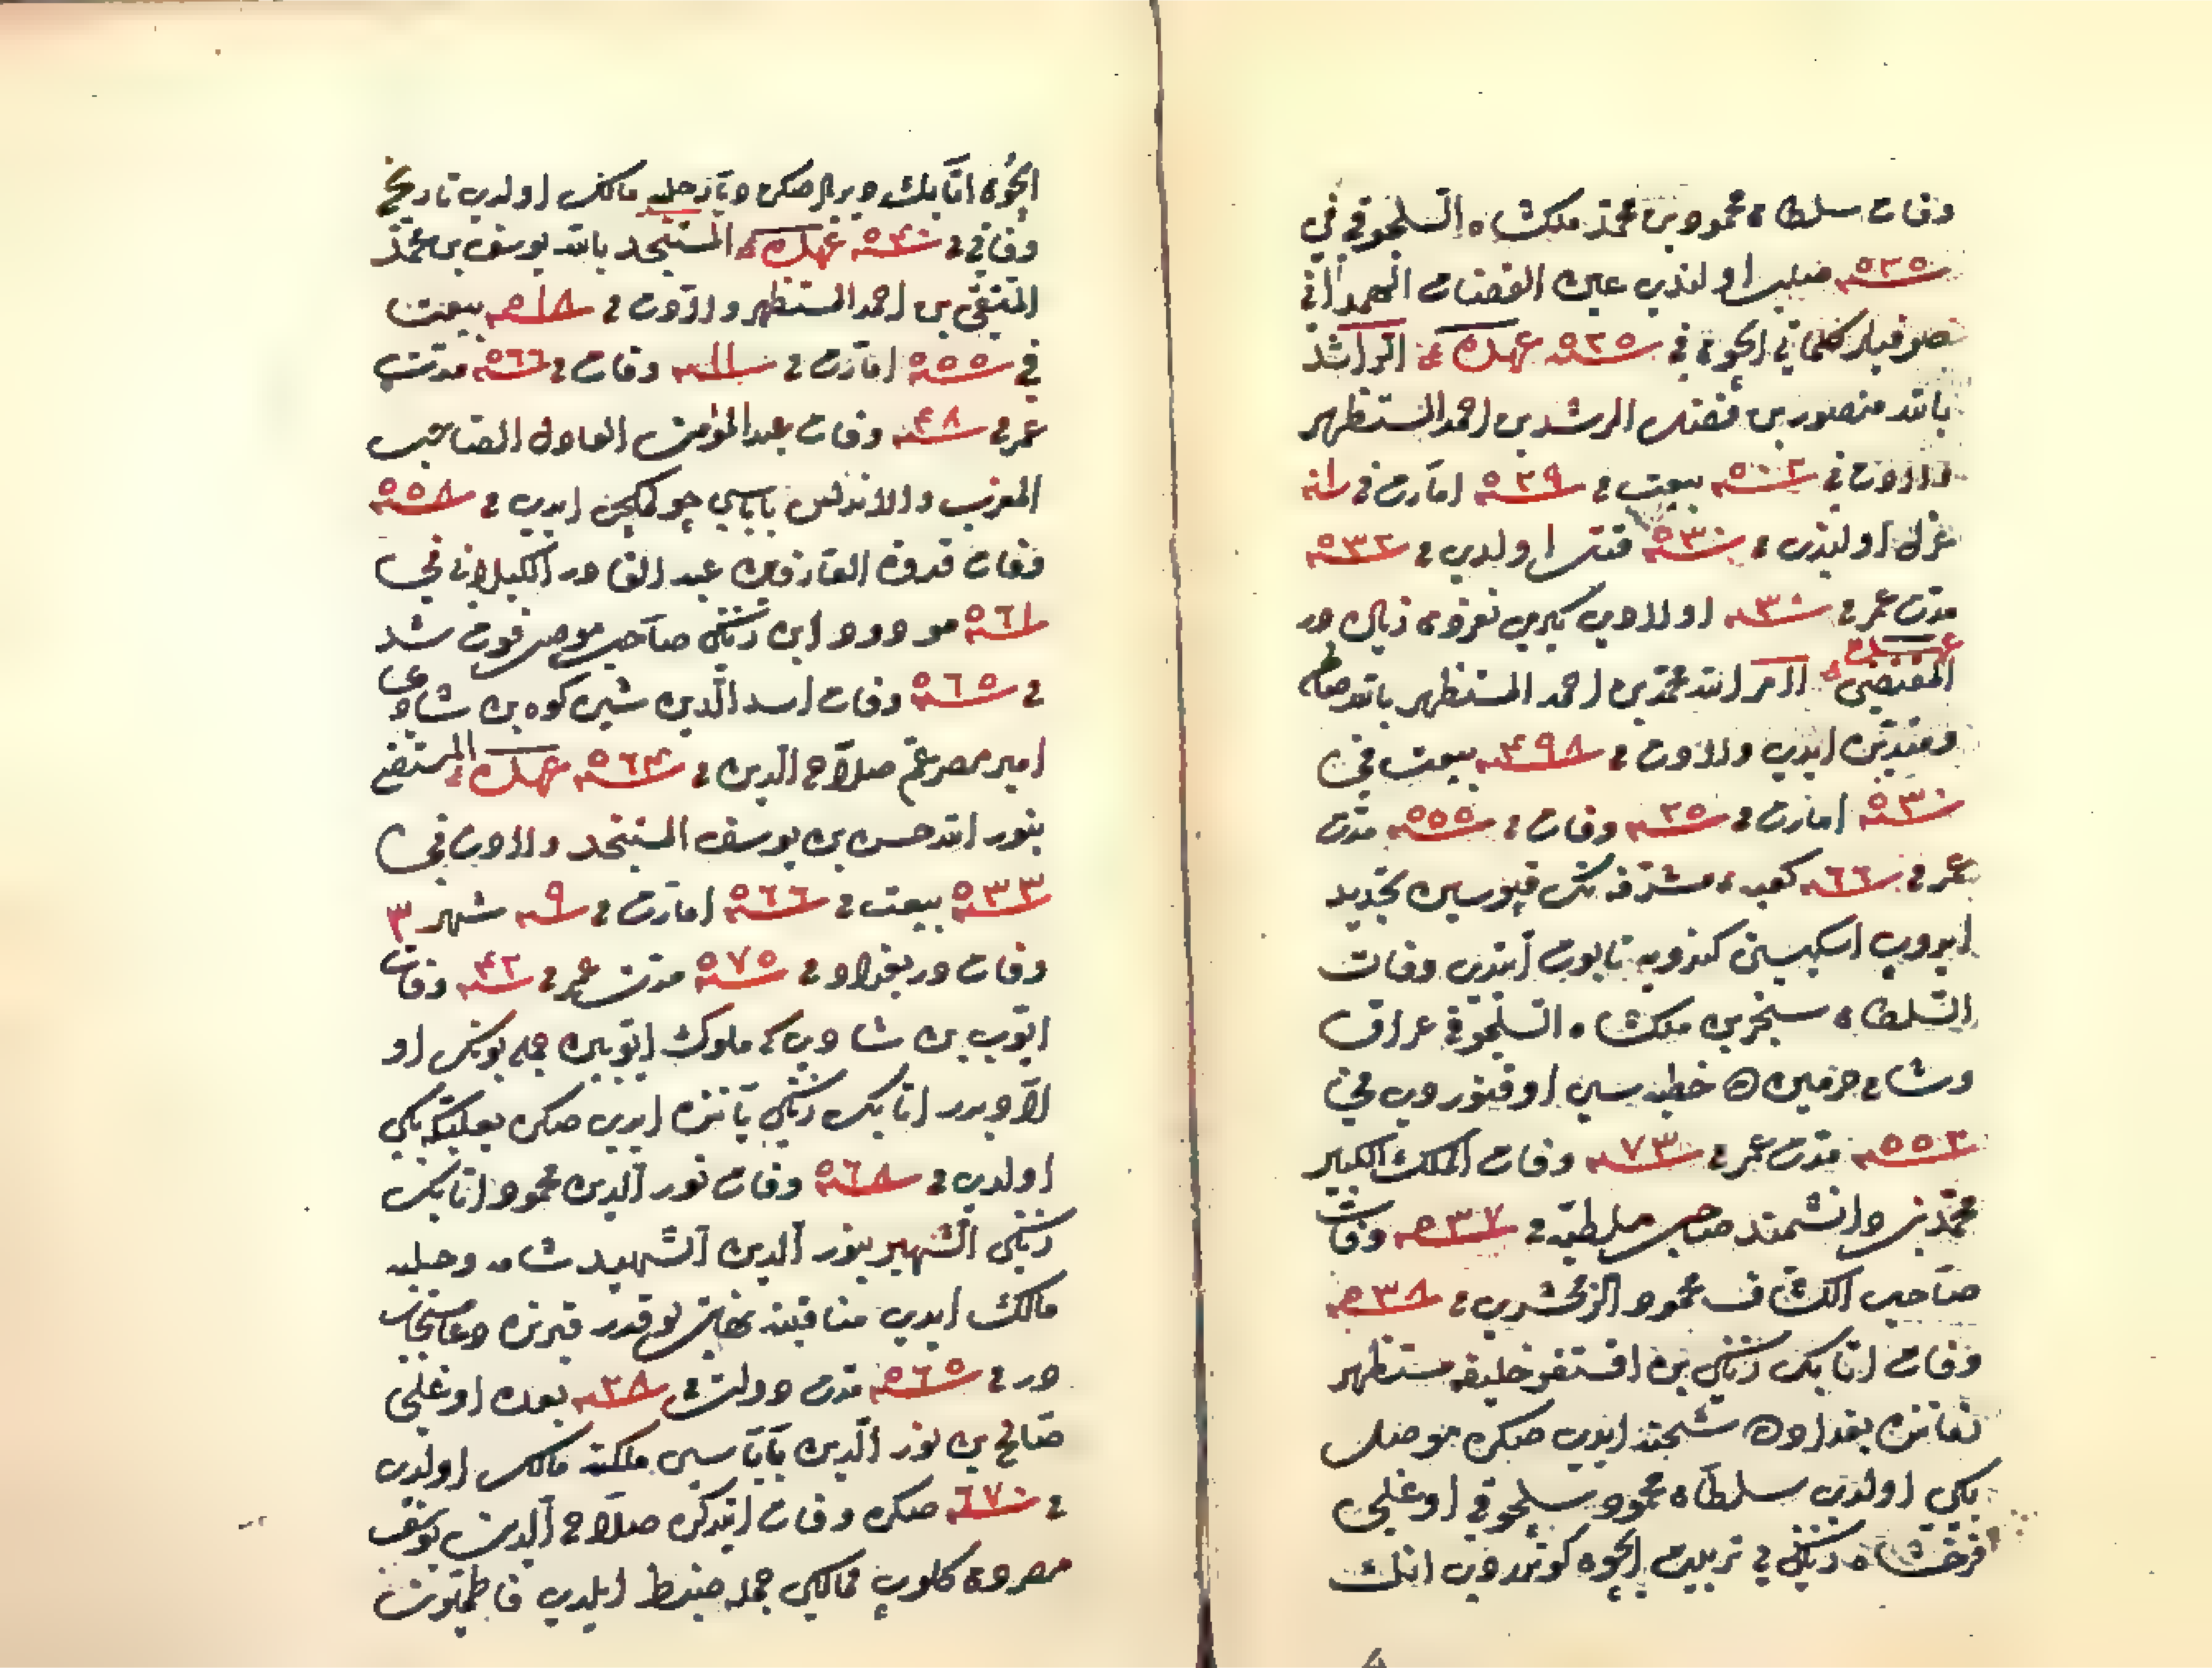 وفات سلطان محمود بن محمد ملكشاه السلجوقي في
سنه ٥٢٥ صلب اولندى عين القضات الهمداني
صوفيلر كلماتي ايچون في سنه ٥٢٥ عهد الراشد
بالله منصور بن فضل الرشد بن احمد المستظهر
ولادت في سنه ٥٠٢ بيعت في سنه ٥٢٩ امارت في سنه ١
عزل اولندى سنه ٥٣٠ قتل اولدى في سنه ٥٣٢
مدت عمر في سنه ٣٠ اولادى يكرمى نفردن زياده در
عهد
المقتضى لامر الله محمد بن احمد المستظهر بالله صالح
ومتدين ايدى ولادت في سنه ٤٩٨ بيعت في
سنه ٥٣٠ امارت في سنه ٢٥ وفات في سنه ٥٥٥ مدت
عمر في سنه ٦٦ كعبه مشرفه نك قپوسين تجديد
ايدوب اسكيسنى كندويه تابوت ايتدى وفات
السلطان سنجر بن ملكشاه السلجوقي عراق
وشام حرمين ده خطبه سين اوقتوردى في
سنه ٥٥٢ مدت عمر في سنه ٧٣ وفات الملك الكبير
محمد بن دانشمند صاحب ملطيه في سنه ٥٣٧ وفات
صاحب الكشاف محمود الزمخشرى في سنه ٥٣٨
وفات اتابك زنكي بن اقسنقر خليفه مستظهر
زماننده بغداد ده شحنه ايدى صكره موصل
بكى اولدى سلطان محمود سلجوقي اوغلى
فرخشاه زنكي في تربيت ايچون كوندردى انك
ايچون اتابك ديرلر صكره ديار حلبه مالك اولدى تاريخ
وفاتي في سنه ٥٤٠ عهد المستنجد بالله يوسف بن محمد
المقتفي بن احمد المستظهر ولادت في سنه ٥١٨ بيعت
في سنه ٥٥٥ امارت في سنه ١١ وفات في سنه ٥٦٦ مدت
عمر في سنه ٤٨ وفات عبد المؤمن العادل الصاحب
المغرب والاندلس باباسى چولمكجى ايدى في سنه ٥٥٨
وفات قدوة العارفين عبد القادر الكيلاني في
سنه ٥٦١ مودود ابن زنكي صاحب موصل فوت شد
في سنه ٥٦٥ وفات اسد الدين شيركوه بن شادى
امير مصر عم صلاح الدين في سنه ٥٦٤ عهد المستضي
بنور الله حسن بن يوسف المستنجد ولادت في
سنه ٥٣٣ بيعت في سنه ٥٦٦ امارت في سنه ٩ شهر ٣
وفات در بغداد في سنه ٥٧٥ مدت عمر في سنه ٤٢ وفات
ايوب بن شادى كه ملوك ايوبين جمله بونك او
لاديدر اتابك زنكي ياننده ايدى صكره بعلبك بكى
اولدى في سنه ٥٦٨ وفات نور الدين محمود اتابك
زنكي الشهير بنور الدين الشهيد شامه وحلبه
مالك ايدى مناقبنه نهايت يوقدر قبرنده دعا مستجاب
در في سنه ٥٦٥ مدت دولت في سنه ٢٨ بعده اوغلى
صالح بن نور الدين باباسى ملكنه مالك اولدى
في سنه ٦٧٠ صكره وفات ايتدكده صلاح الدين يوسف
مصردن كلوب ممالكي جمله ضبط ايلدى فاطميون